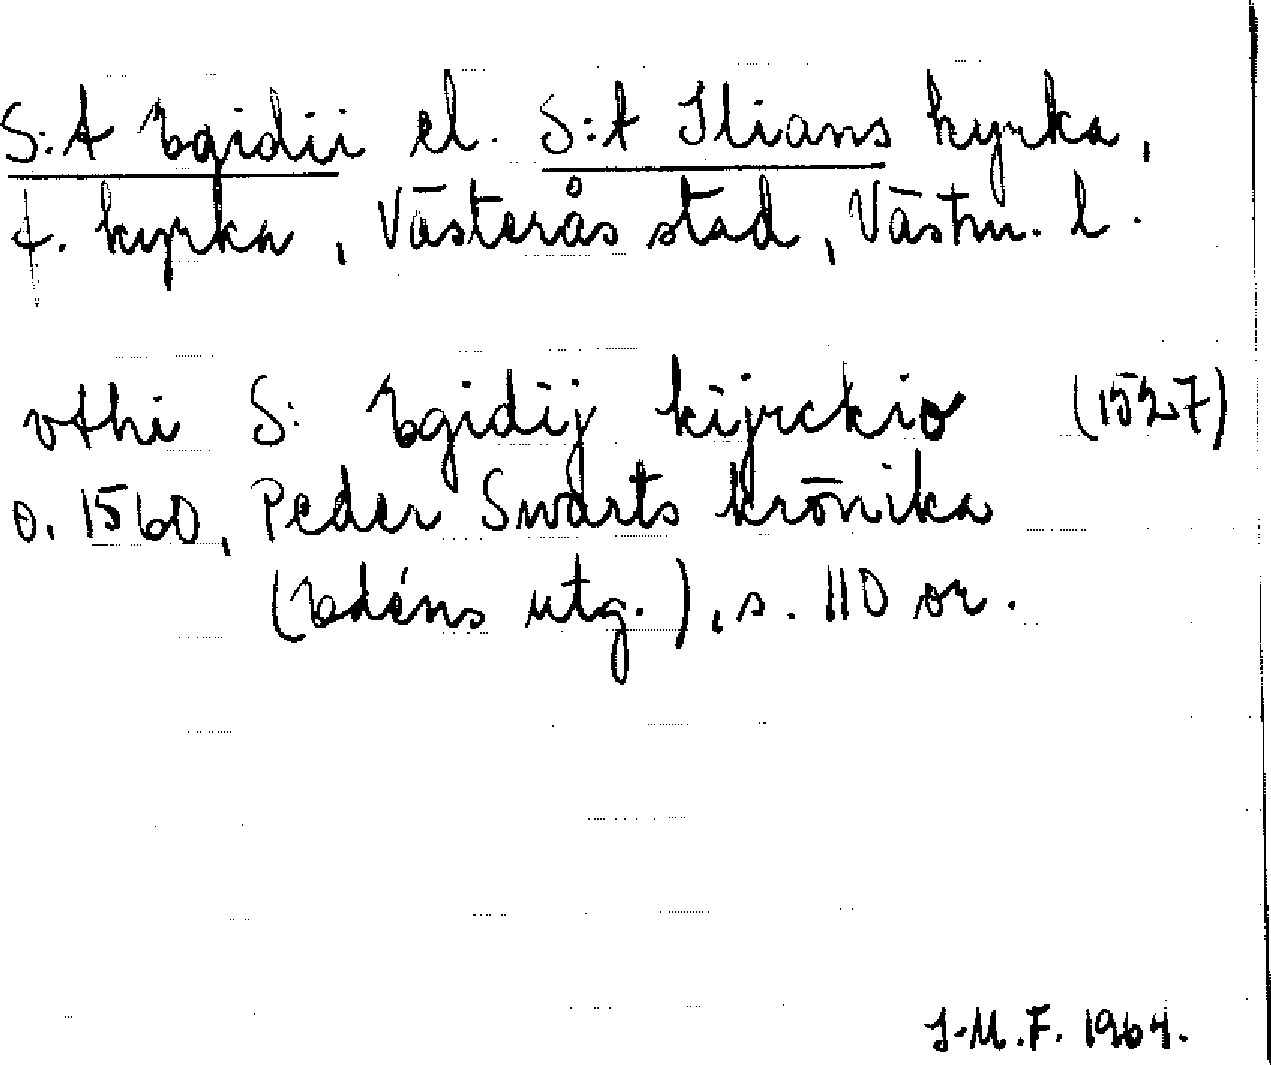 S:t Egidii el. S:t Ilians kyrka,
f. kyrka, Västerås stad, Västm. l.
vthi S: Egidij kijrckio (1527)
o. 1560, Peder Swarts krönika
(Edéns utg.), s. 110 or.
I-M.F. 1964.